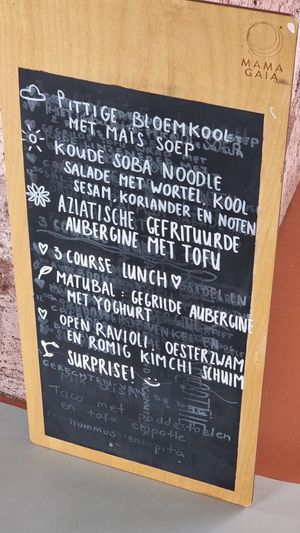 MAMA
GAIA
PITTIGE BLOEMKOOL
MET MAIS SOEP
KOUDE SOBA NOODLE
SALADE MET WORTEL, KOOL
SESAM, KORIANDER EN NOTEN
AZIATISCHE GEFRITUURDE
AUBERGINE MET TOFU
♡ 3 COURSE LUNCH ♡
MATUBAL: GEGRILDE AUBERGINE
MET YOGHURT
♡ OPEN RAVIOLI, OESTERZWAM
EN ROMIG KIMCHI SCHUIM
SURPRISE!
GERECHTEN VAN
Taco met paddestoelen
en tofu chipotle
hummus
pita